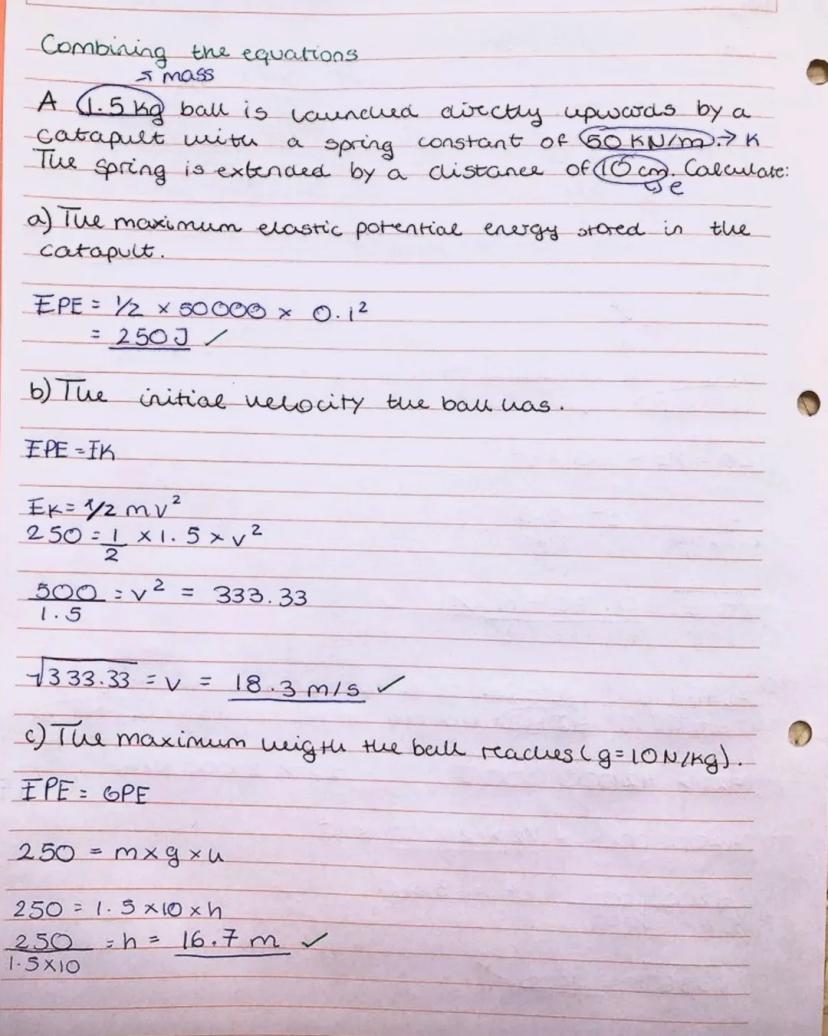 Combining the equations
↗ mass
A 1.5 kg ball is launched directly upwards by a
catapult with a spring constant of 50 KN/m. → K
The spring is extended by a distance of 10 cm. Calculate:
↳ e
a) The maximum elastic potential energy stored in the
catapult.
EPE = 1/2 × 50000 × 0.1²
= 250 J ✓
b) The initial velocity the ball has.
EPE = EK
EK = 1/2 mv²
250 = 1/2 × 1.5 × v²
500/1.5 = v² = 333.33
√333.33 = v = 18.3 m/s ✓
c) The maximum heigth the ball reaches (g=10N/kg).
EPE = GPE
250 = m × g × h
250 = 1.5 × 10 × h
250/1.5×10 = h = 16.7 m ✓